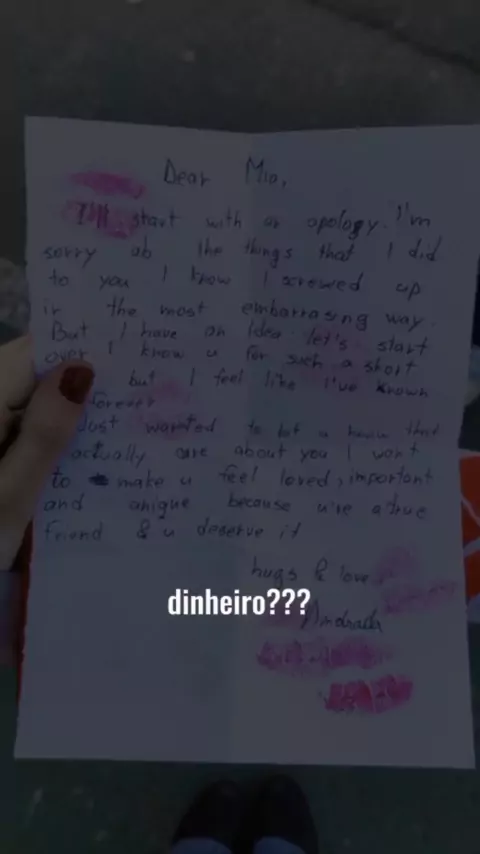 Dear Mia,
I'll start with an apology. I'm
sorry ab the things that I did
to you I know I screwed up
in the most embarrasing way.
But I have an idea let's start
over I know u for such a short
but I feel like I've known
forever
Just wanted to let u know that
actually care about you I want
to make u feel loved, important
and unique because u're a true
friend & u deserve it
hugs & love,
dinheiro???